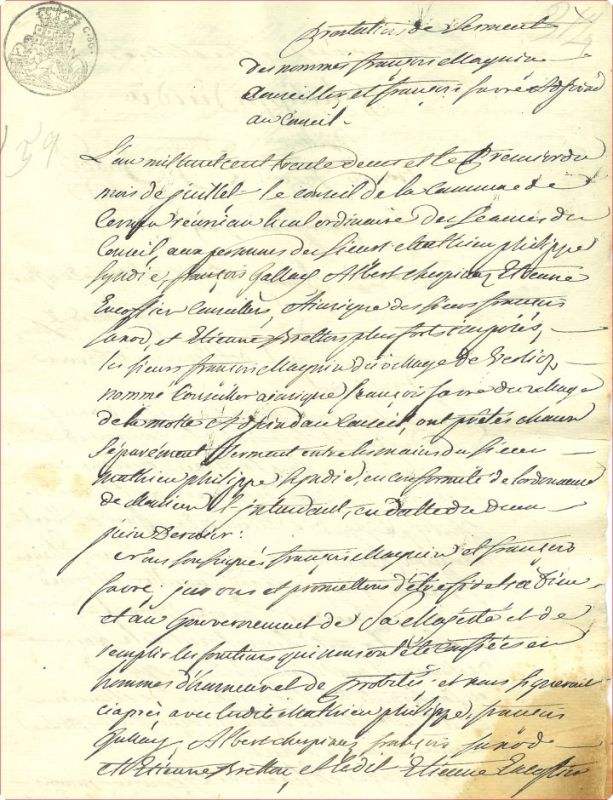 Prestation de Serment
des nommés françois Maquin
Conseiller, et françois favre Adjoind
au Conseil.
L'an mil huit cent trente deux et le Premier du
mois de juillet le conseil de la Commune de
réuni au lieu ordinaire des Séances du
Conseil, aux personnes des Sieurs Mathieu philippe
Syndic, françois Gallay Albert cherpinaz, Etienne
Encoffier Conseillers, Ainsique des Sieurs françois
et Etienne Bretton plus forts imposés,
les Sieurs françois Maquin du village de
nommé Conseiller ainsique françois favre du village
de la motte Adjoind au Conseil, ont prêtés chacun
Séparément Serment entre les mains du Sieur
mathieu philippe Syndic, en conformité de l'ordonnance
de Monsieur l'intendant, en datte du deux
juin Dernier:
Nous soussignés françois Maquin et françois
favre, jurons et promettons d'être à Dieu
et au Gouvernement de Sa Majesté et de
remplir les fonctions qui nous ont été confiées en
hommes d'honneur et de Probité, et nous signerons
ciaprès, avec ledit Mathieu philippe, françois
Gallay, Albert cherpinaz françois
et Etienne Bretton, et ledit Etienne Encoffier